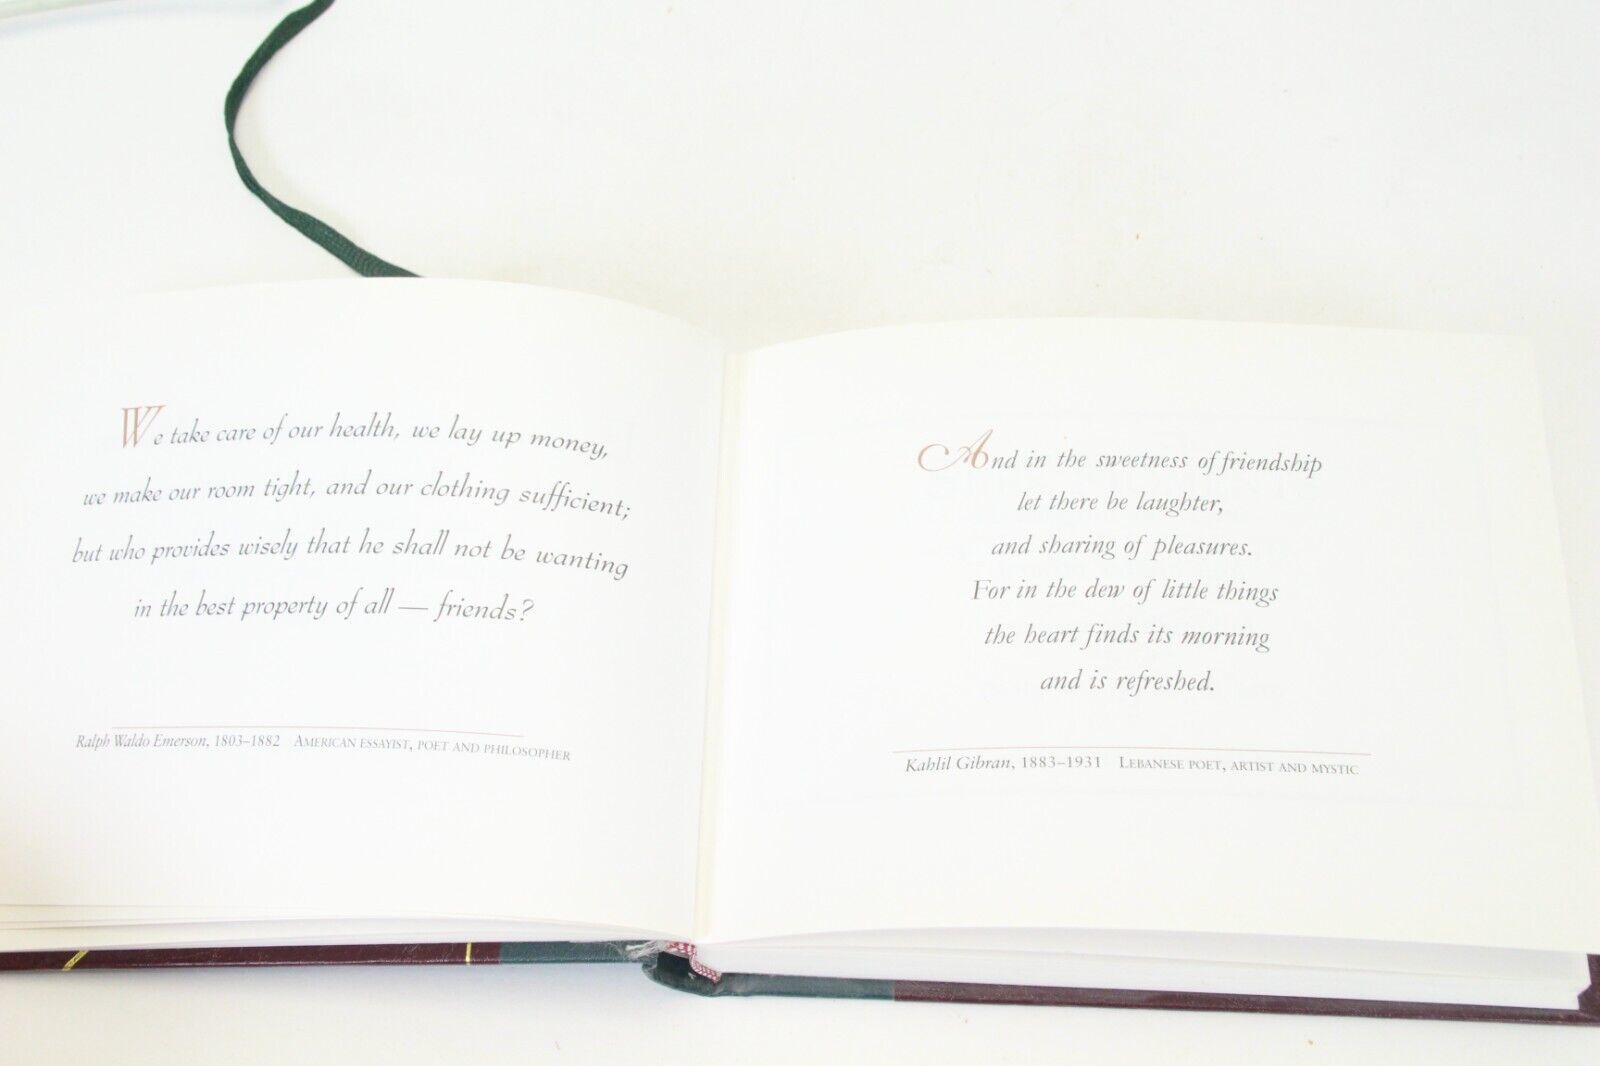 We take care of our health, we lay up money,
we make our room tight, and our clothing sufficient;
but who provides wisely that he shall not be wanting
in the best property of all — friends?
Ralph Waldo Emerson, 1803–1882 AMERICAN ESSAYIST, POET AND PHILOSOPHER
And in the sweetness of friendship
let there be laughter,
and sharing of pleasures.
For in the dew of little things
the heart finds its morning
and is refreshed.
Kahlil Gibran, 1883–1931 LEBANESE POET, ARTIST AND MYSTIC